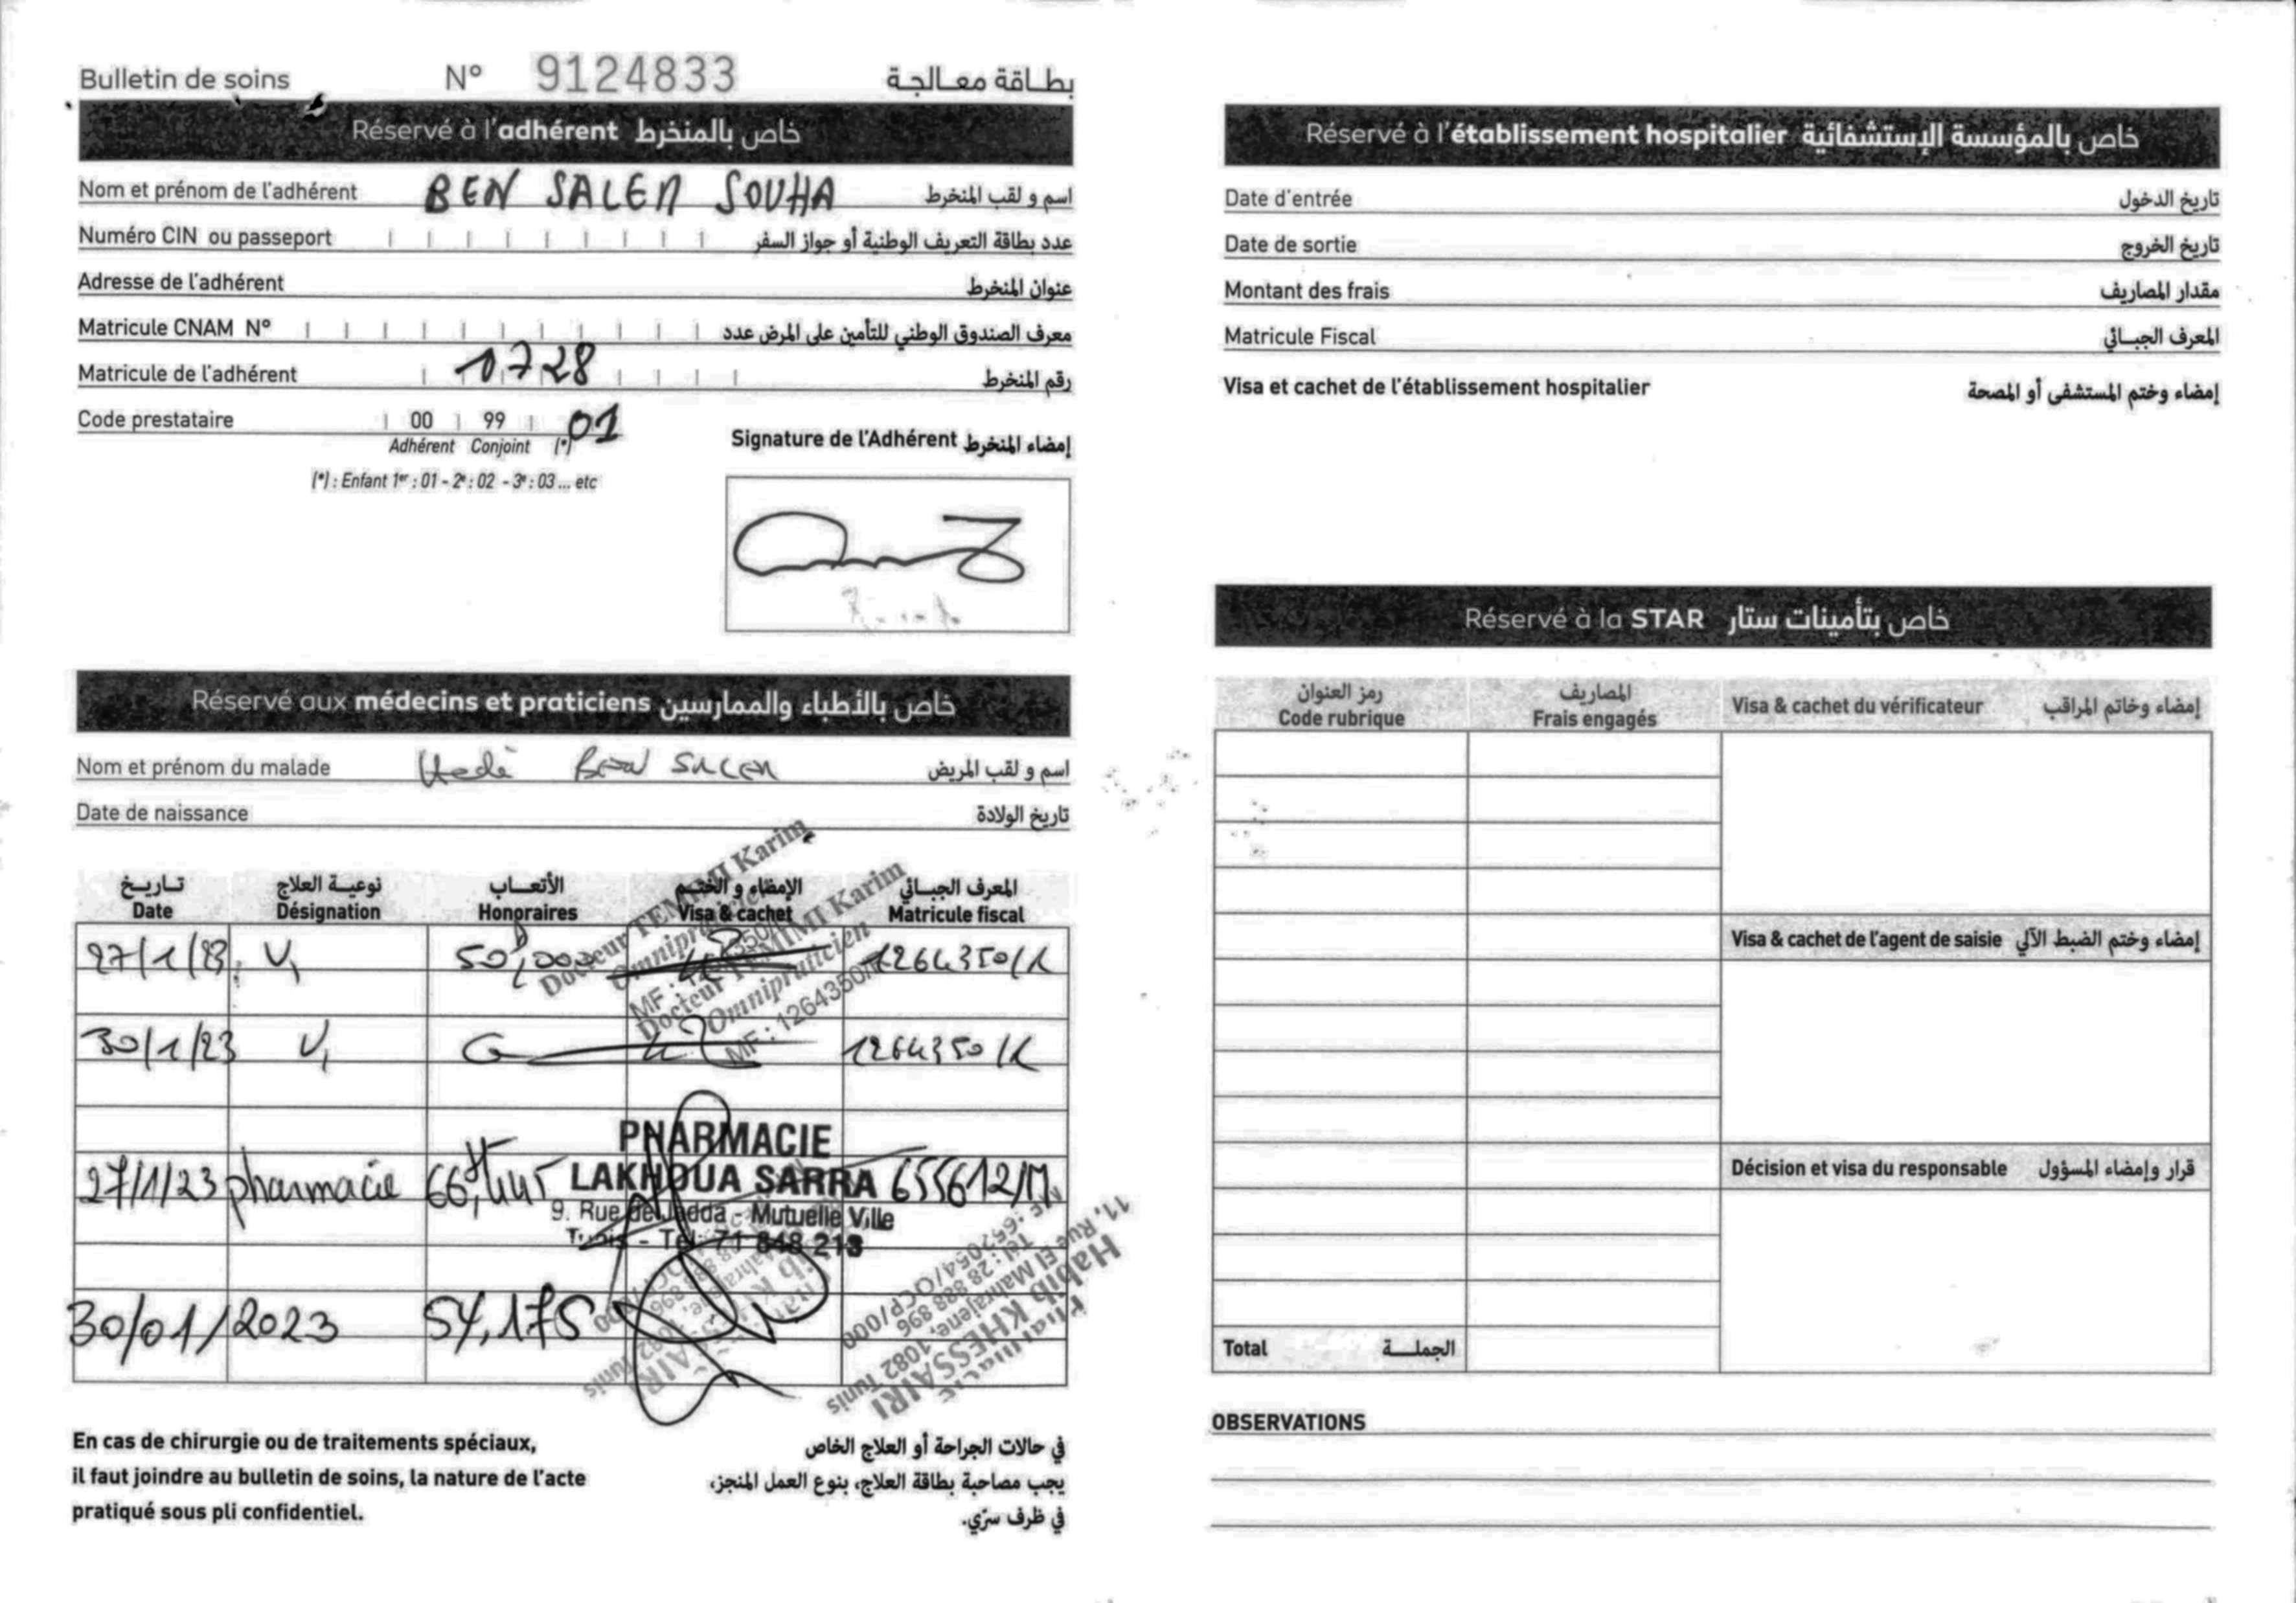 Bulletin de soins N° 9124833 بطاقة معالجة
Réservé à l'adhérent خاص بالمنخرط
Nom et prénom de l'adhérent BEN SALEM SOUHA اسم و لقب المنخرط
Numéro CIN ou passeport عدد بطاقة التعريف الوطنية أو جواز السفر
Adresse de l'adhérent عنوان المنخرط
Matricule CNAM N° معرف الصندوق الوطني للتأمين على المرض عدد
Matricule de l'adhérent 1728 رقم المنخرط
Code prestataire 00 99 01
Adhérent Conjoint (*)
(*) : Enfant 1er : 01 - 2e : 02 - 3e : 03 ... etc
Signature de l'Adhérent إمضاء المنخرط
Réservé aux médecins et praticiens خاص بالأطباء والممارسين
Nom et prénom du malade BEN SALEM اسم و لقب المريض
Date de naissance تاريخ الولادة
تاريخ نوعية العلاج الأتعاب الإمضاء و الختم المعرف الجبائي
Date Désignation Honoraires Visa & cachet Matricule fiscal
27/1/23 V1 50,000 1264350/K
Docteur TEMIMI Karim
Omnipraticien
Docteur TEMIMI Karim
Omnipraticien
MF : 1264350/
30/1/23 V1 1264350/K
PHARMACIE
27/1/23 pharmacie 66,445 LAKHOUA SARRA 655612/M
9. Rue de Jadda - Mutuelle Ville
Tunis - Tél: 71 848 213
30/01/2023 54,175
Pharmacie
Habib KHESSAIRI
11, Rue El Mahrajene, 1082 Tunis
Tél : 28 888 896
En cas de chirurgie ou de traitements spéciaux,
il faut joindre au bulletin de soins, la nature de l'acte
pratiqué sous pli confidentiel.
في حالات الجراحة أو العلاج الخاص
يجب مصاحبة بطاقة العلاج، بنوع العمل المنجز،
في ظرف سرّي.
Réservé à l'établissement hospitalier خاص بالمؤسسة الإستشفائية
Date d'entrée تاريخ الدخول
Date de sortie تاريخ الخروج
Montant des frais مقدار المصاريف
Matricule Fiscal المعرف الجبائي
Visa et cachet de l'établissement hospitalier إمضاء وختم المستشفى أو المصحة
Réservé à la STAR خاص بتأمينات ستار
رمز العنوان المصاريف
Code rubrique Frais engagés Visa & cachet du vérificateur إمضاء وخاتم المراقب
Visa & cachet de l'agent de saisie إمضاء وختم الضبط الآلي
Décision et visa du responsable قرار وإمضاء المسؤول
Total الجملة
OBSERVATIONS